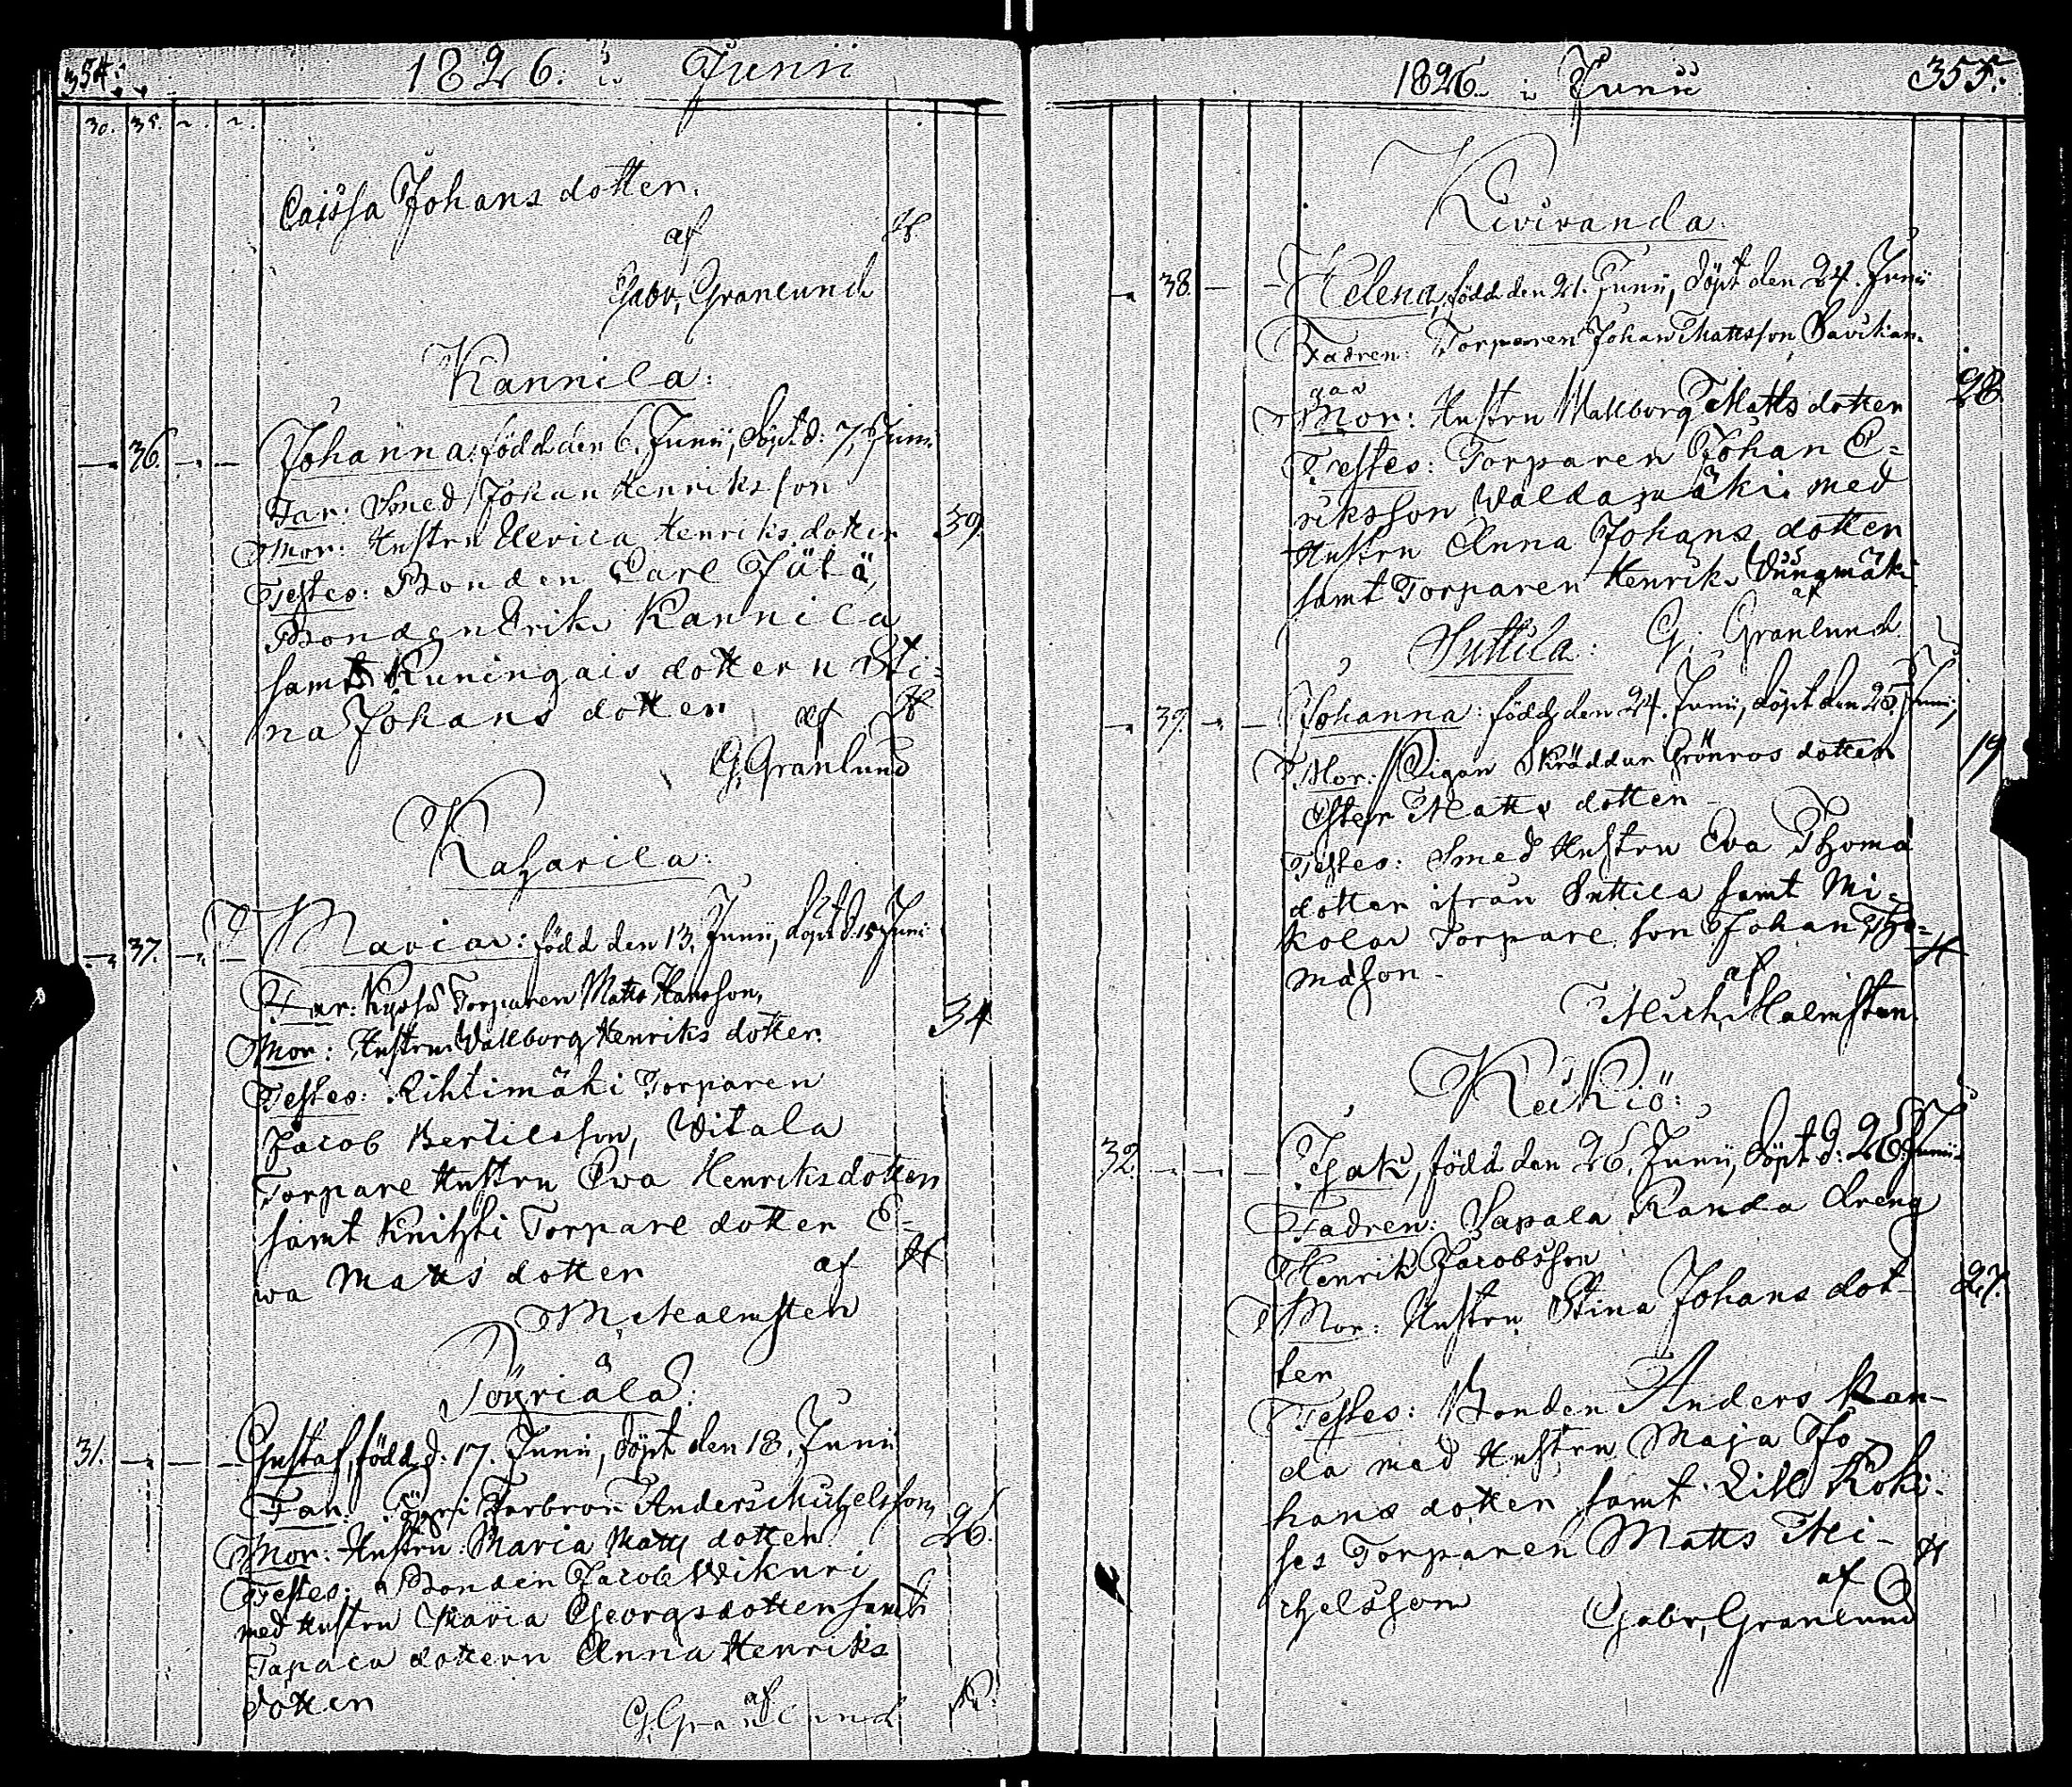 354.
1826. i Junii
30. 35. ~. ~.
Caissa Johans dotter.
af
Gabr. Granlund
Kannila:
36. Johanna: född den 6. Junii, döpt d: 7. Junii
Far: Smed Johan Henriksson
Mor: Hustru Ulrica Henriks dotter 39.
Testes: Bonden Carl Jütä,
Bonden Erik Kannila
samt Kuningais dottern Sti-
na Johans dotter af
G. Granlund
Kaharila:
37. Maria: född den 13. Junii, döpt d. 15 Junii
Far: Torparen Matts Hansson,
Mor: Hustru Wallborg Henriks dotter. 34
Testes: Rihtimäki Torparen
Jacob Bertilsson, Witala
Torpare Hustru Eva Henriksdotter
samt Knihti Torpare dotter E-
wa Matts dotter af
M. Malmsten
Pöyriälä:
31. Gustaf, född d. 17. Junii, döpt den 18. Junii
Far: Farbror Anders Michelsson,
Mor: Hustru Maria Matts dotter 26.
Testes: Bonden Jacob Wikuri
med Hustru Maria Georgsdotter samt
Tapala dottern Anna Henriks
dotter af
G. Granlund
1826. i Junii
355.
Kiviranda.
38. Helena, född den 21. Junii, döpt den 24. Junii
Fadren: Torparen Johan Mattsson Savikan-
gas 28
Mor: Hustru Wallborg Matts dotter
Testes: Torparen Johan E-
riksson Waldamäki med
Hustru Anna Johans dotter
samt Torparen Henrik
af
Suttila: G. Granlund.
39. Johanna: född den 24. Junii, döpt den 25. Junii,
Mor: Pigan Skräddar Grönros dotter 19
Ester Matts dotter
Testes: Smed Hustru Eva Thoma
dotter ifrån Suttila samt Mi-
kolas Torpare son Johan Tho-
masson - af
Mich. Malmsten.
Keikiö:
32. Isak, född den 26. Junii, döpt d: 28. Junii
Fadren: Sapala Randa dreng
Henrik Jacobsson
Mor: Hustru Stina Johans dot- 27.
ter
Testes: Bonden Anders Ran-
da med Hustru Maja Jo-
hans dotter samt Lill Koki-
ses Torparen Matts Mi-
chelsson af
Gabr. Granlund